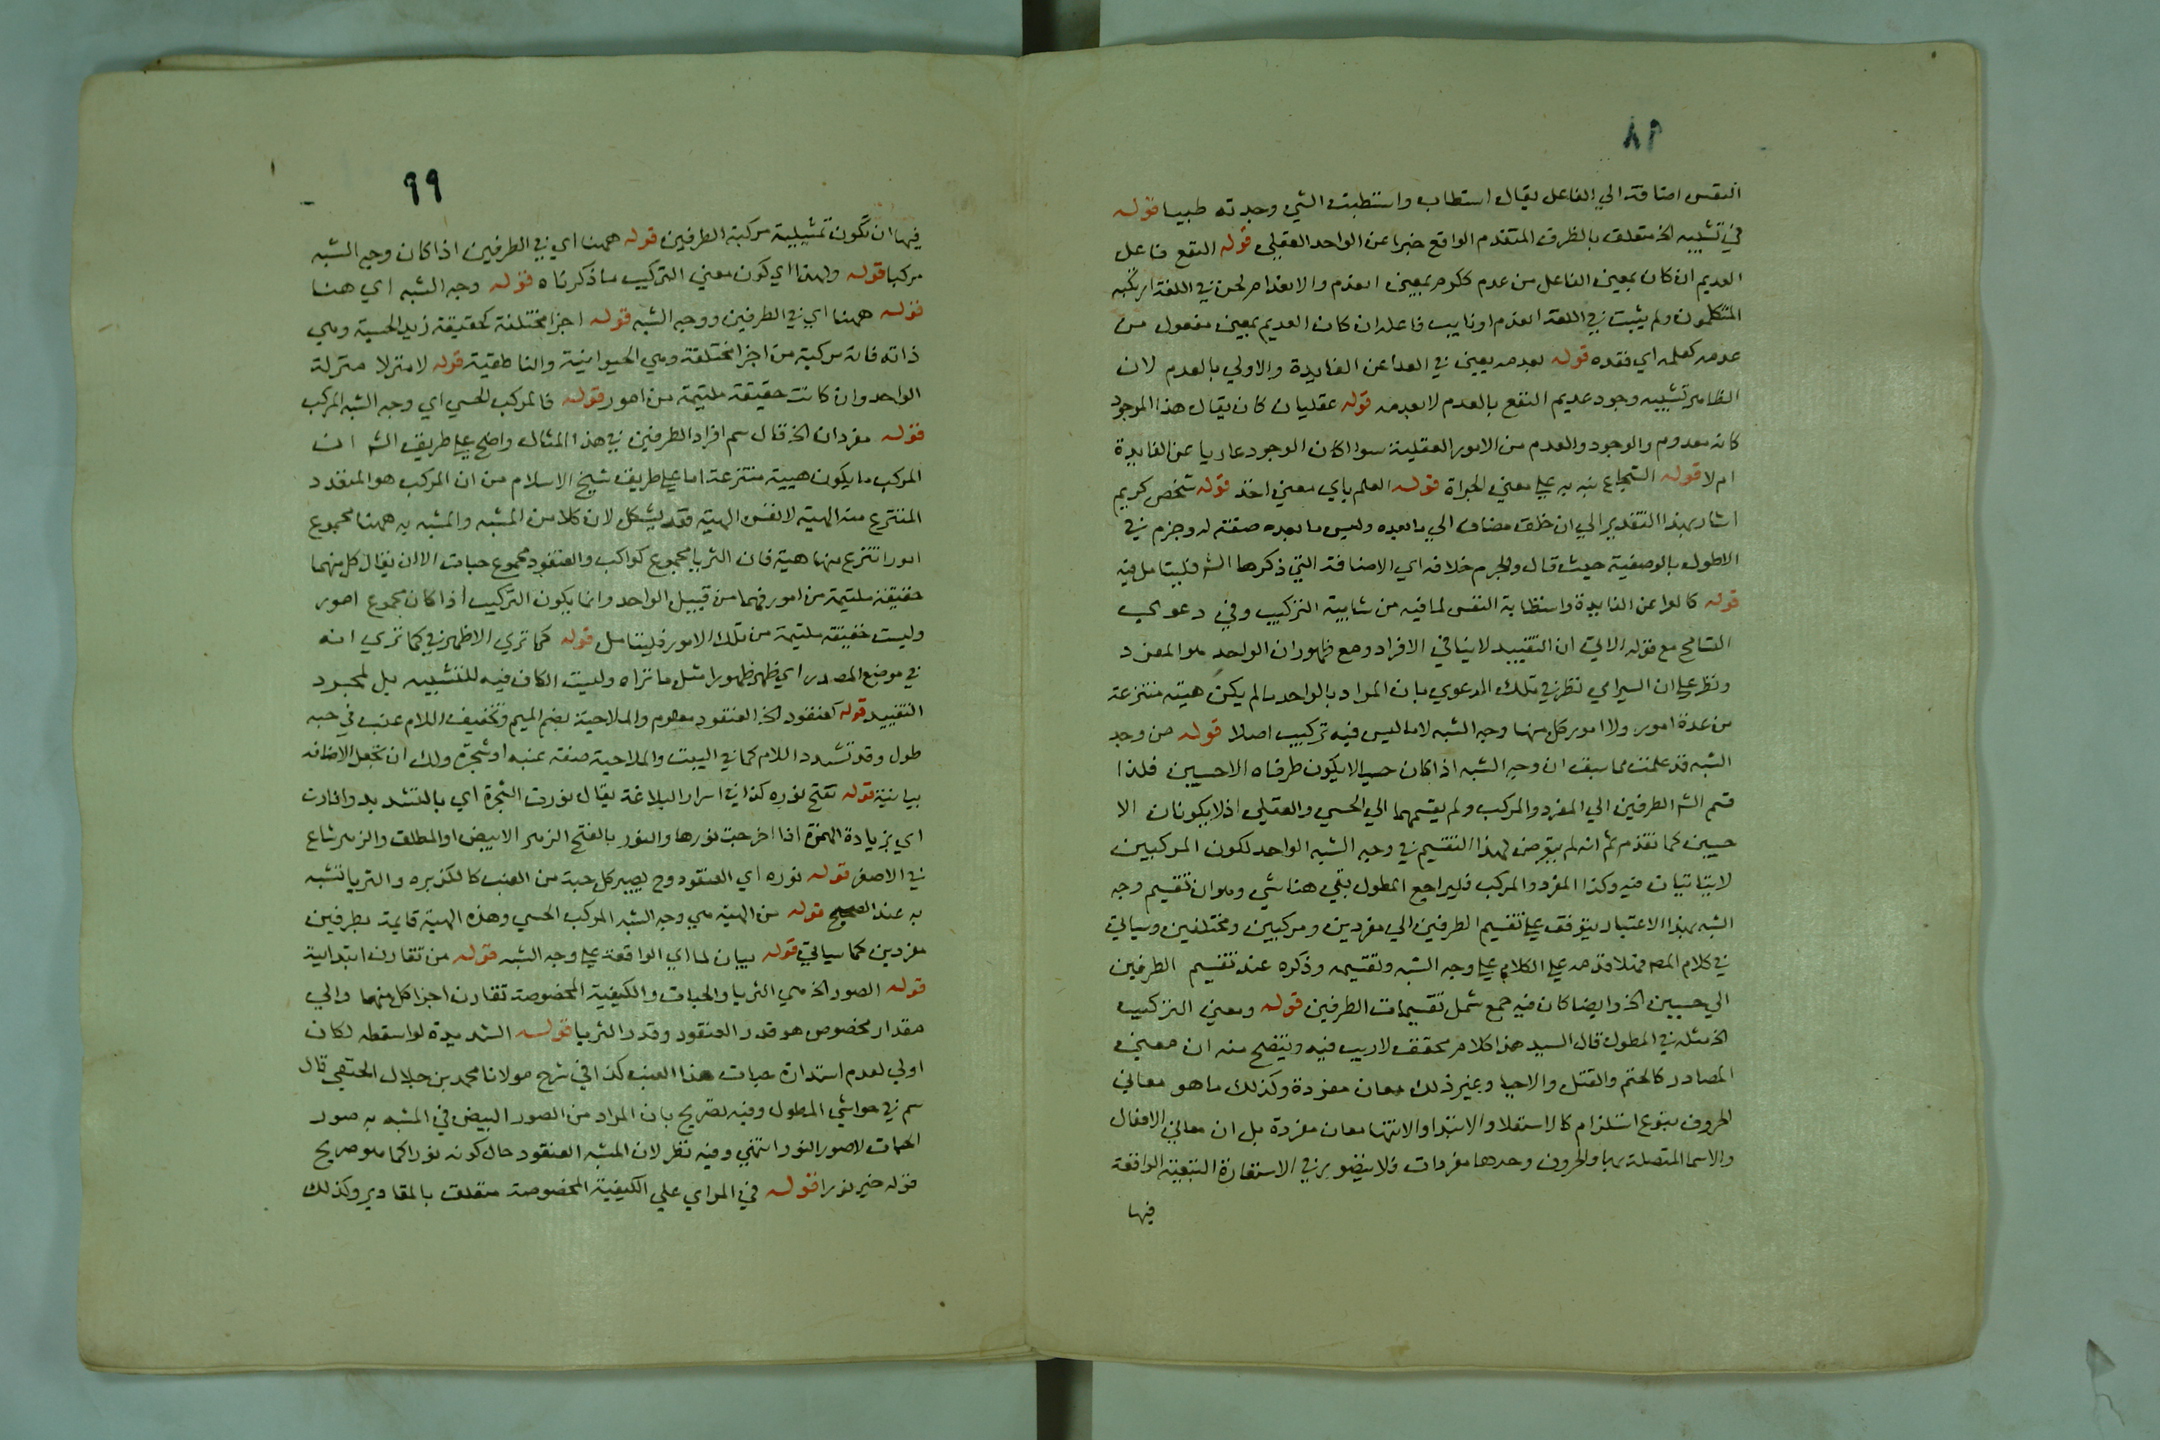 ٩٨
النفس اضافة الي الفاعل يقال استطاب واستطبت الشي وجدته طيبا قوله
في تشبيه الخ متعلق بالظرف المتقدم الواقع خبرا عن الواحد العقلي قوله النفع فاعل
العديم ان كان بمعني الفاعل من عدم ككرم بمعني انعدم والانعدام لحن في اللغة ارتكبه
المتكلمون ولم يثبت في اللغة انعدم او نايب فاعله ان كان العديم بمعني مفعول من
عدمه كعلمه اي فقده قوله بعدمه يعني في العرا عن الفايدة والاولي بالعدم لان
الظاهر تشبيه وجود عديم النفع بالعدم لا بعدمه قوله عقليان كان يقال هذا الموجود
كانه معدوم والوجود والعدم من الامور العقلية سوا كان الوجود عاريا عن الفايدة
ام لا قوله الشجاع نبه به علي معني الجراة قوله العلم باي معني اخذ قوله شخص كريم
اشار بهذا التقدير الي ان خلق مضاف الي ما بعده وليس ما بعده صفته له وجزم في
الاطول بالوصفية حيث قال والجزم خلافه اي الاضافة التي ذكرها الش فليتامل فيه
قوله كالعرا عن الفايدة واستطابة النفس لما فيه من شايبة التركيب وفي دعوي
التسامح مع قوله الاتي ان التقييد لا ينافي الافراد ومع ظهور ان الواحد هو المفرد
ونظر علي ان السيرامي نظر في تلك الدعوي بان المراد بالواحد ما لم يكن هيئة منتزعة
من عدة امور ولا امور كل منها وجه الشبه لا ما ليس فيه تركيب اصلا قوله من وجه
الشبه قد علمت مما سبق ان وجه الشبه اذا كان حسيا لا يكون طرفاه الا حسيين فلذا
قسم الش الطرفين الي المفرد والمركب ولم يقسمهما الي الحسي والعقلي اذ لا يكونان الا
حسيين كما تقدم ثم انه لم يتعرض لهذا التقسيم في وجه الشبه الواحد لكون المركبين
لا يتاتيان فيه وكذا المفرد والمركب فليراجع المطول بقي هنا شي وهو ان تقسيم وجه
الشبه بهذا الاعتبار يتوقف علي تقسيم الطرفين الي مفردين ومركبين ومختلفين وسياتي
في كلام المص فهلا قدمه علي الكلام علي وجه الشبه وتقسيمه وذكره عند تقسيم الطرفين
الي حسيين الخ وايضا كان فيه جمع شمل تقسيمات الطرفين قوله ومعني التركيب
الخ مثله في المطول قال السيد هذا كلام محقق لا ريب فيه ويتضح منه ان معني
المصادر كالختم والقتل والاحيا وغير ذلك معان مفردة وكذلك ما هو معاني
الحروف بنوع استلزام كالاستعلا والابتدا والانتها معان مفردة بل ان معاني الافعال
والاسما المتصلة بها والحروف وحدها مفردات فلا يتصور في الاستعارة التبعية الواقعة
فيها
٩٩
فيها ان تكون تمثيلية مركبة الطرفين قوله ههنا اي في الطرفين اذا كان وجه الشبه
مركبا قوله ولهذا اي كون معني التركيب ما ذكرناه قوله وجه الشبه اي هنا
قوله ههنا اي في الطرفين ووجه الشبه قوله اجزا مختلفة كحقيقة زيد الحسية وهي
ذاته فانه مركبة من اجزا مختلفة وهي الحيوانية والناطقية قوله لا منزلا منزلة
الواحد وان كانت حقيقة ملتيمة من امور قوله فالمركب الحسي اي وجه الشبه المركب
قوله مفردان الخ قال سم افراد الطرفين في هذا المثال واضح علي طريق الش ان
المركب ما يكون هيية منتزعة اما علي طريق شيخ الاسلام من ان المركب هو المتعدد
المنتزع منه الهيئة لا نفس الهيئة فقد يشكل لان كلا من المشبه والمشبه به ههنا مجموع
امور انتزع منها هيئة فان الثريا مجموع كواكب والعنقود مجموع حبات الا ان يقال كل منهما
حقيقة ملتيمة من امور فهما من قبيل الواحد وانما يكون التركيب اذا كان مجموع امور
وليست حقيقة ملتيمة من تلك الامور فليتامل قوله كما تري الاظهر في كما تري انه
في موضع المصدر اي ظهر ظهورا مثل ما تراه وليست الكاف فيه للتشبيه بل لمجرد
التقييد قوله كعنقود الخ العنقود معلوم والملاحية بضم الميم وتخفيف اللام عنب في حبه
طول وقد تشدد اللام كما في البيت والملاحية صفة عنبه او شجرة ولك ان تجعل الاضافه
بيانية قوله تفتح نوره كذا في اسرار البلاغة يقال نورت الشجرة اي بالتشديد وانارت
اي بزيادة الهمزة اذا اخرجت نورها والنور بالفتح الزهر الابيض او المطلق والزهر شاع
في الاصفر قوله نوره اي العنقود وح يصير كل حبة من العنب كالكزبره والثريا تشبه
به عند الصبح قوله من الهيئة هي وجه الشبه المركب الحسي وهذه الهيئة قايمة بطرفين
مفردين كما سياتي قوله بيان لما اي الواقعة علي وجه الشبه قوله من تقارن ابتدائية
قوله الصور الخ هي الثريا والحبات والكيفية المخصوصة تقارن اجزا كل منهما والي
مقدار مخصوص هو قدر العنقود وقدر الثريا قوله الشديدة لو اسقطه لكان
اولي لعدم استدارة حبات هذا العنب كذا في شرح مولانا محمد بن جلال الحنفي قال
سم في حواشي المطول وفيه تصريح بان المراد من الصور البيض في المشبه به صور
الحبات لا صور النور انتهي وفيه نظر لان المشبه العنقود حال كونه نورا كما هو صريح
قوله حين نورا قوله في المراي علي الكيفية المخصوصة متعلق بالمقادير وكذلك